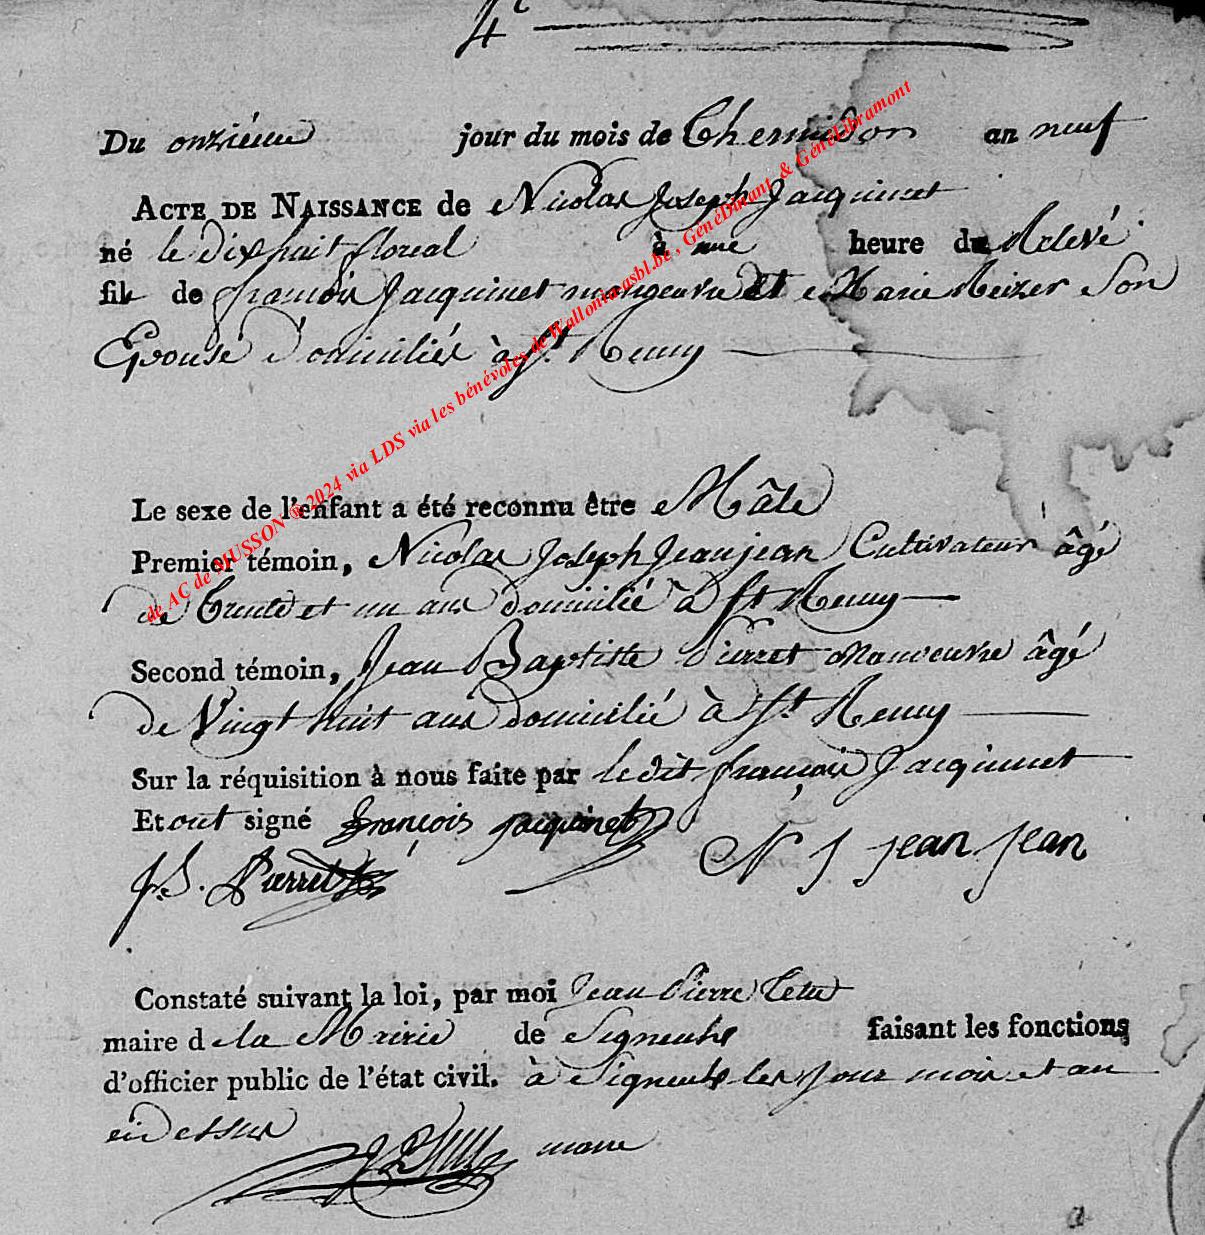 4e
Du onziéme jour du mois de Thermidor an neuf
ACTE DE NAISSANCE de Nicolas Joseph Jacquinet
né le dix huit floreal à une heure du Relevé
fils de françois Jacquinet manoeuvre Et Marie Reizer Son
Epouse domiciliés à St Remy
Le sexe de l'enfant a été reconnu être Mâle
Premier témoin, Nicolas Joseph Jeanjean Cultivateur âgé
de trente et un ans domicilié à St Remy
Second témoin, Jean Baptiste Pierret Manoeuvre âgé
de Vingt huit ans domicilié à St Remy
Sur la réquisition à nous faite par ledit françois Jacquinet
Et ont signé François jacquinet
N J jean jean
J.B. Pierret
Constaté suivant la loi, par moi Jean Pierre
maire de la Mairie de Signeulx faisant les fonctions
d'officier public de l'état civil. à Signeulx les Jour mois et an
maire
de AC de MUSSON ® 2024 via LDS via les bénévoles de Wallonica asbl.be , GénéDinant & GénéLibramont